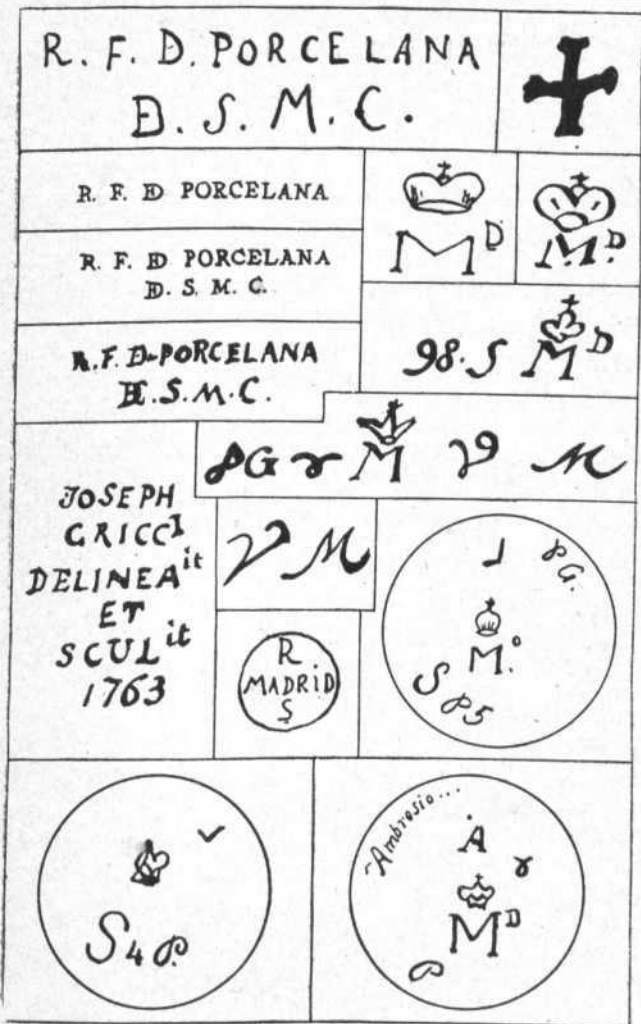 R. F. D. PORCELANA
D. S. M. C.
R. F. D PORCELANA
M D
M. D
R. F. D PORCELANA
D. S. M. C.
R. F. D PORCELANA
D. S. M. C.
98. S M D
G M M
JOSEPH
GRICCI
DELINEA it
ET
SCUL it
1763
M
R
MADRID
S
G.
M. o
S P 5
S 4 P.
Ambrosio...
A
M D
P